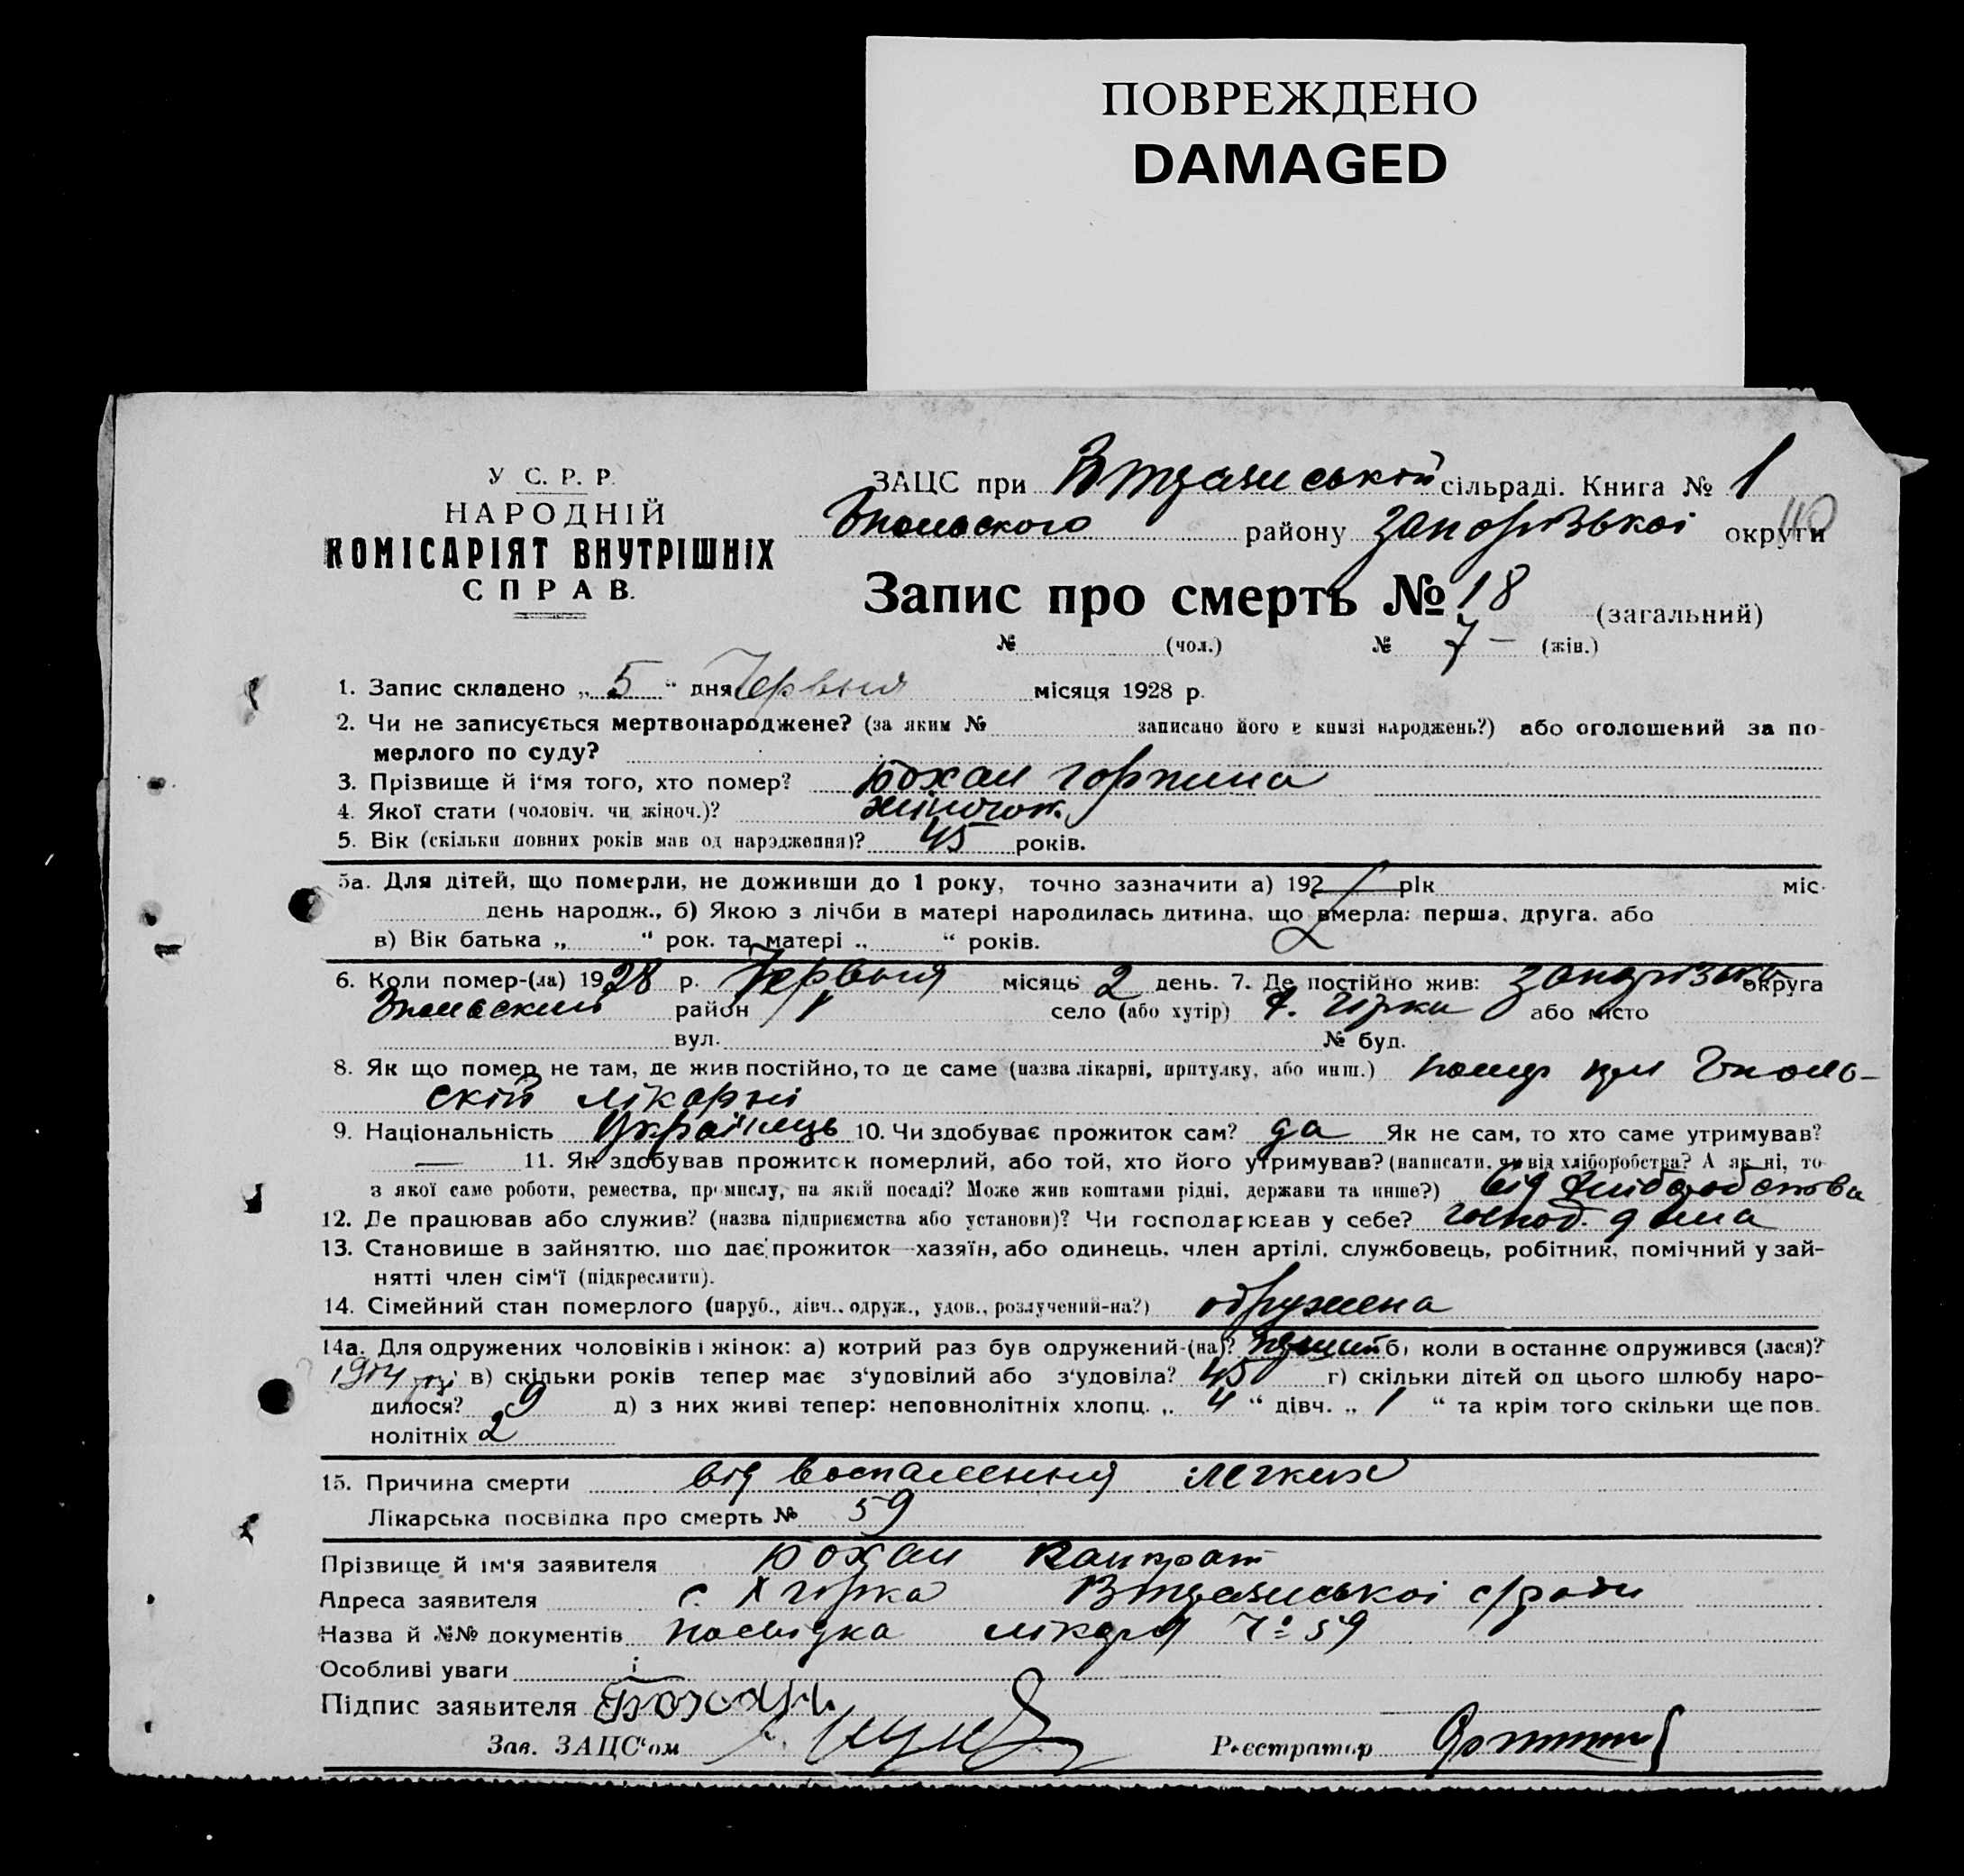 ПОВРЕЖДЕНО
DAMAGED
У С. Р. Р.
НАРОДНІЙ
КОМІСАРІЯТ ВНУТРІШНІХ
СПРАВ.
ЗАЦС при сільраді. Книга № 1
району Запорізької округи 110
Запис про смерть № 18 (загальний)
№ (чол.) № 7 — (жін.)
1. Запис складено „ 5 “ дня Червня місяця 1928 р.
2. Чи не записується мертвонароджене? (за яким № записано його в книзі народжень?) або оголошений за по-
мерлого по суду?
3. Прізвище й і‘мя того, хто помер? Бохан Горпина
4. Якої стати (чоловіч. чи жіноч.)? жіночок.
5. Вік (скільки повних років мав од народження)? 45 років.
5а. Для дітей, що померли, не доживши до 1 року, точно зазначити а) 192 рік міс.
день народж., б) Якою з лічби в матері народилась дитина, що вмерла: перша, друга, або
в) Вік батька „ “ рок. та матері „ “ років.
6. Коли помер-(ла) 1928 р. Червня місяць 2 день. 7. Де постійно жив: округа
район село (або хутір) або місто
вул. № буд.
8. Як що помер не там, де жив постійно, то де саме (назва лікарні, притулку, або инш.) помер при
скій лікарні
9. Національність Українець 10. Чи здобуває прожиток сам? да Як не сам, то хто саме утримував?
— 11. Як здобував прожиток померлий, або той, хто його утримував? (написати, чи від хліборобства? А як ні, то
з якої саме роботи, ремества, промислу, на якій посаді? Може жив коштами рідні, держави та инше?) від хліборобства
12. Де працював або служив? (назва підприємства або установи)? Чи господарював у себе? господ. дома
13. Становише в зайняттю, що дає прожиток—хазяїн, або одинець, член артілі, службовець, робітник, помічний у зай-
нятті член сім‘ї (підкреслити).
14. Сімейний стан померлого (паруб., дівч., одруж., удов., розлучений-на?) одружена
14а. Для одружених чоловіків і жінок: а) котрий раз був одружений-(на)? б) коли востаннє одружився (лася)?
в) скільки років тепер має з‘удовілий або з‘удовіла? 45 г) скільки дітей од цього шлюбу наро-
дилося? 9 д) з них живі тепер: неповнолітніх хлопц. „ 4 “ дівч. „ 1 “ та крім того скільки ще пов.
нолітніх 2
15. Причина смерти від воспалення легких
Лікарська посвідка про смерть № 59
Прізвище й ім‘я заявителя Бохан Панкрат
Адреса заявителя с. с/ради
Назва й №№ документів посвідка лікаря № 59
Особливі уваги
Підпис заявителя Бохан
Зав. ЗАЦС‘ом Реєстратор